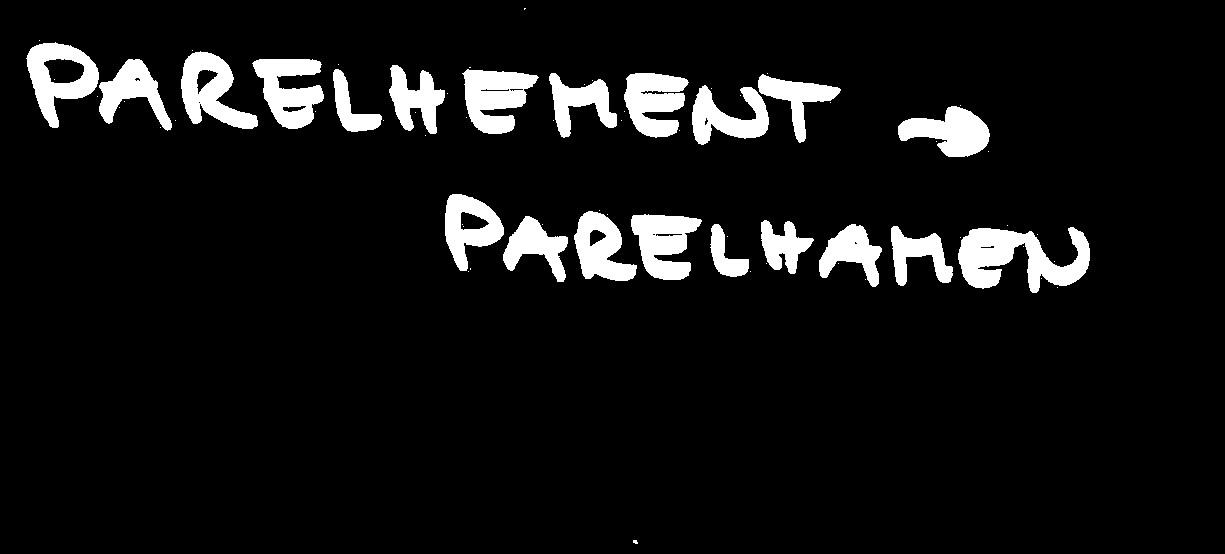 PARELHEMENT →
PARELHAMEN